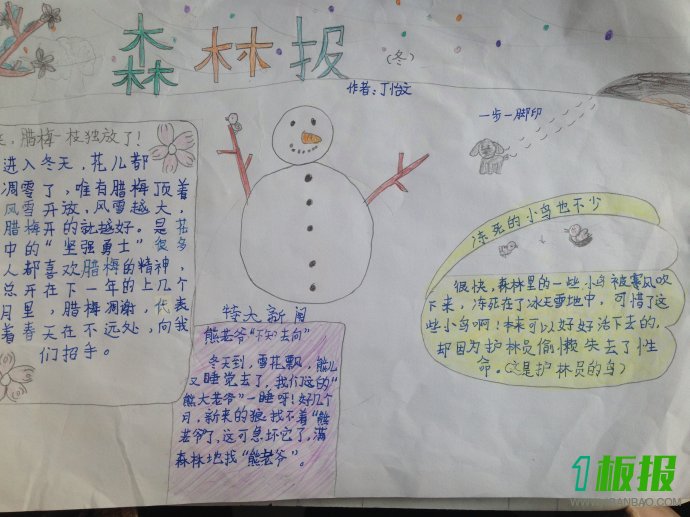 森林报
(冬)
作者:丁怡文
一步一脚印
,腊梅一枝独放了!
进入冬天,花儿都
凋零了,唯有腊梅顶着
风雪开放,风雪越大,
腊梅开的就越好。是花
中的“坚强勇士”很多
人都喜欢腊梅的精神,
总开在下一年的上几个
月里,腊梅凋谢,代表
着春天在不远处,向我
们招手。
特大新闻
熊老爷“不知去向”
冬天到,雪花飘,熊儿
又睡觉去了,我们这的“
熊大老爷”一睡呀!好几个
月,新来的狼找不着“熊
老爷”了,这可急坏它了,满
森林地找“熊老爷”。
冻死的小鸟也不少
很快,森林里的一些小鸟被寒风吹
下来,冻死在了冰天雪地中,可惜了这
些小鸟啊!本来可以好好活下去的,
却因为护林员偷懒失去了性
命。(这是护林员的鸟)
1板报
WWW.1BANBAO.COM